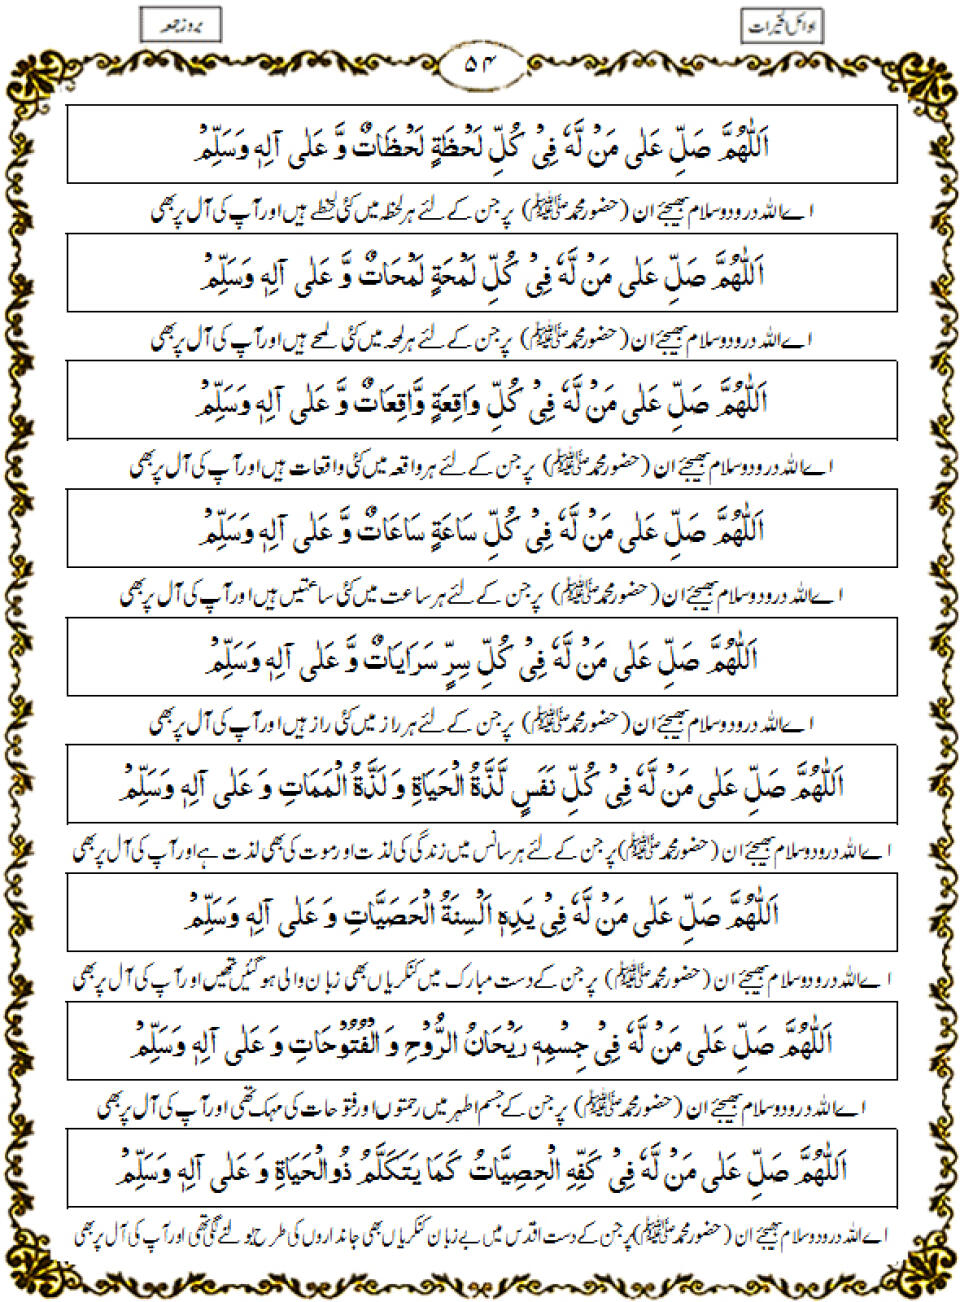 اوائل الخیرات
بروز جمعہ
۵۴
اَللّٰهُمَّ صَلِّ عَلٰى مَنْ لَّهٗ فِىْ كُلِّ لَحْظَةٍ لَحْظَاتٌ وَّ عَلٰى آلِهٖ وَسَلِّمْ
اے اللہ درود و سلام بھیجئے ان (حضور محمد ﷺ) پر جن کے لئے ہر لحظہ میں کئی لحظے ہیں اور آپ کی آل پر بھی
اَللّٰهُمَّ صَلِّ عَلٰى مَنْ لَّهٗ فِىْ كُلِّ لَمْحَةٍ لَمْحَاتٌ وَّ عَلٰى آلِهٖ وَسَلِّمْ
اے اللہ درود و سلام بھیجئے ان (حضور محمد ﷺ) پر جن کے لئے ہر لمحہ میں کئی لمحے ہیں اور آپ کی آل پر بھی
اَللّٰهُمَّ صَلِّ عَلٰى مَنْ لَّهٗ فِىْ كُلِّ وَاقِعَةٍ وَّاقِعَاتٌ وَّ عَلٰى آلِهٖ وَسَلِّمْ
اے اللہ درود و سلام بھیجئے ان (حضور محمد ﷺ) پر جن کے لئے ہر واقعہ میں کئی واقعات ہیں اور آپ کی آل پر بھی
اَللّٰهُمَّ صَلِّ عَلٰى مَنْ لَّهٗ فِىْ كُلِّ سَاعَةٍ سَاعَاتٌ وَّ عَلٰى آلِهٖ وَسَلِّمْ
اے اللہ درود و سلام بھیجئے ان (حضور محمد ﷺ) پر جن کے لئے ہر ساعت میں کئی ساعتیں ہیں اور آپ کی آل پر بھی
اَللّٰهُمَّ صَلِّ عَلٰى مَنْ لَّهٗ فِىْ كُلِّ سِرٍّ سَرَايَاتٌ وَّ عَلٰى آلِهٖ وَسَلِّمْ
اے اللہ درود و سلام بھیجئے ان (حضور محمد ﷺ) پر جن کے لئے ہر راز میں کئی راز ہیں اور آپ کی آل پر بھی
اَللّٰهُمَّ صَلِّ عَلٰى مَنْ لَّهٗ فِىْ كُلِّ نَفَسٍ لَّذَّةُ الْحَيَاةِ وَ لَذَّةُ الْمَمَاتِ وَ عَلٰى آلِهٖ وَسَلِّمْ
اے اللہ درود و سلام بھیجئے ان (حضور محمد ﷺ) پر جن کے لئے ہر سانس میں زندگی کی لذت اور موت کی بھی لذت ہے اور آپ کی آل پر بھی
اَللّٰهُمَّ صَلِّ عَلٰى مَنْ لَّهٗ فِىْ يَدِهٖ اَلْسِنَةُ الْحَصَيَّاتِ وَ عَلٰى آلِهٖ وَسَلِّمْ
اے اللہ درود و سلام بھیجئے ان (حضور محمد ﷺ) پر جن کے دست مبارک میں کنکریاں بھی زبان والی ہو گئیں تھیں اور آپ کی آل پر بھی
اَللّٰهُمَّ صَلِّ عَلٰى مَنْ لَّهٗ فِىْ جِسْمِهٖ رَيْحَانُ الرُّوْحِ وَ الْفُتُوْحَاتِ وَ عَلٰى آلِهٖ وَسَلِّمْ
اے اللہ درود و سلام بھیجئے ان (حضور محمد ﷺ) پر جن کے جسم اطہر میں رحمتوں اور فتوحات کی مہک تھی اور آپ کی آل پر بھی
اَللّٰهُمَّ صَلِّ عَلٰى مَنْ لَّهٗ فِىْ كَفِّهِ الْحِصِيَّاتُ كَمَا يَتَكَلَّمُ ذُوالْحَيَاةِ وَ عَلٰى آلِهٖ وَسَلِّمْ
اے اللہ درود و سلام بھیجئے ان (حضور محمد ﷺ) پر جن کے دست اقدس میں بے زبان کنکریاں بھی جانداروں کی طرح بولنے لگی تھی اور آپ کی آل پر بھی